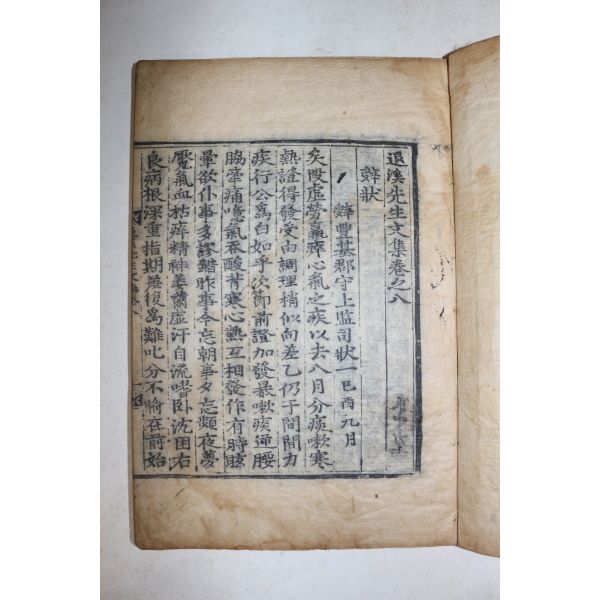 退溪先生文集卷之八
辭狀
辭豐基郡守上監司狀一 己酉九月
矣段虛勞羸瘁心氣之疾以去八月分痰嗽寒
熱證得發受由調理稍似向差乙仍于間間力
疾行公爲白如乎次節前證加發暴嗽痰逆腰
脇牽痛噫氣吞酸背寒心熱互相發作有時眩
暈欲仆事多謬錯昨事今忘朝事夕忘頻夜夢
魘氣血枯瘁精神萎薾虛汗自流嗜卧沈困右
良病根深重指期差復爲難叱分不喩在前始